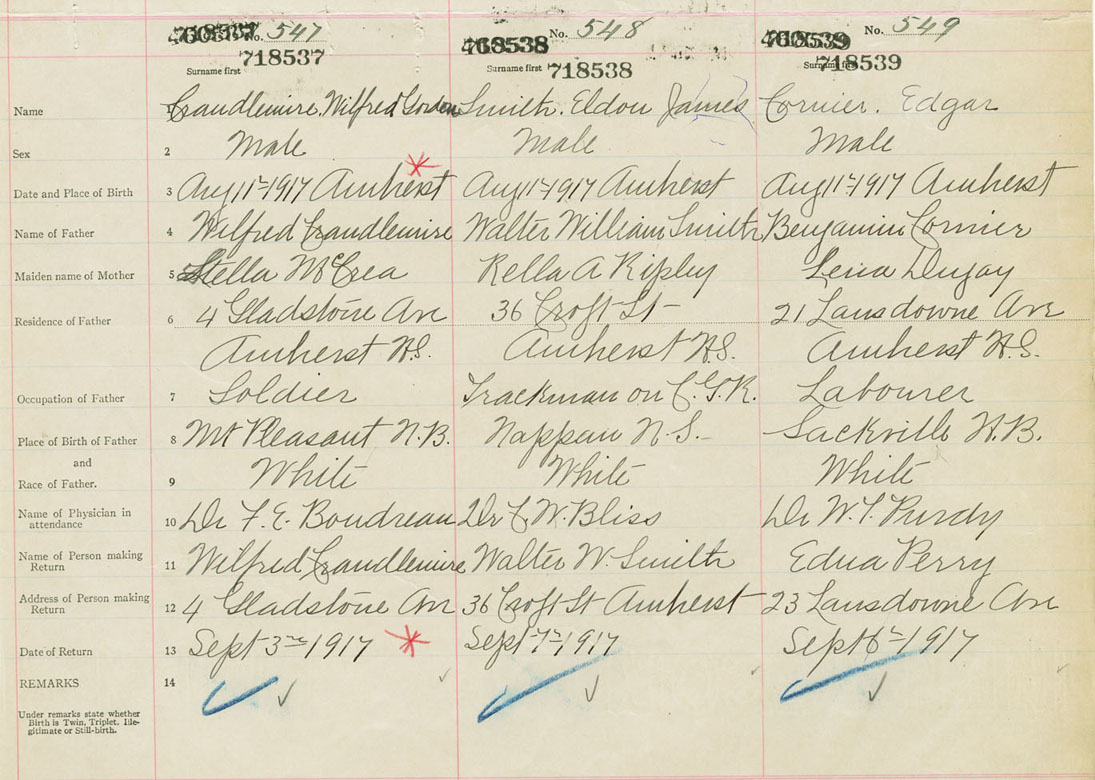 No. 547 No. 548 No. 549
718537 718538 718539
Surname first Surname first Surname first
Name 1 Crandlemire, Wilfred Gordon Smith. Eldon James Cormier. Edgar
Sex 2 Male Male Male
Date and Place of Birth 3 Aug 11th 1917 Amherst Aug 11th 1917 Amherst Aug 11th 1917 Amherst
Name of Father 4 Wilfred Crandlemire Walter William Smith Benjamin Cormier
Maiden name of Mother 5 Stella McCrea Rella A Ripley Lena Dugay
Residence of Father 6 4 Gladstone Ave 36 Croft St 21 Lansdowne Ave
Amherst N.S. Amherst N.S. Amherst N.S.
Occupation of Father 7 Soldier Trackman on C.G.R. Labourer
Place of Birth of Father 8 Mt Pleasant N.B. Nappan N.S. Sackville N.B.
and
Race of Father. 9 White White White
Name of Physician in
attendance 10 Dr F. E. Boudreau Dr C. W. Bliss Dr W. T. Purdy
Name of Person making
Return 11 Wilfred Crandlemire Walter W. Smith Edna Perry
Address of Person making
Return 12 4 Gladstone Ave 36 Croft St Amherst 23 Lansdowne Ave
Date of Return 13 Sept 3rd 1917 Sept 7th 1917 Sept 6th 1917
REMARKS 14
Under remarks state whether
Birth is Twin, Triplet, Ille-
gitimate or Still-birth.